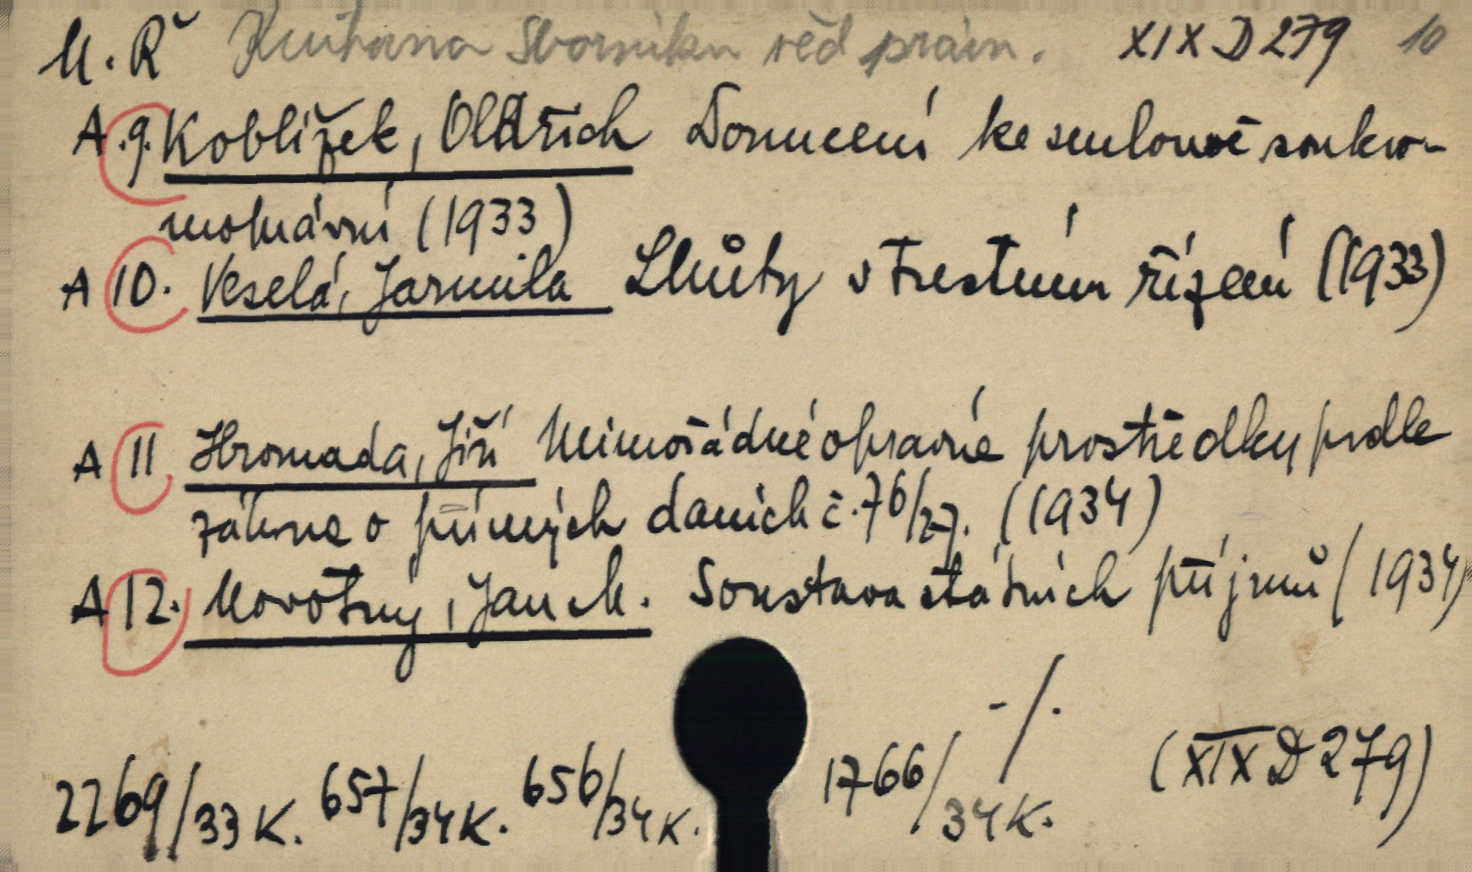 M. Ř Knihovna Sborníku věd práv. XIX D 279 10
A 9. Koblížek, Oldřich Donucení ke smlouvě soukro-
moprávní (1933)
A 10. Veselá, Jarmila Lhůty v trestním řízení (1933)
A 11 Hromada, Jiří Mimořádné opravné prostředky podle
zákona o přímých daních č. 76/27. (1934)
A 12. Novotný, Jan M. Soustava státních příjmů (1934)
-/.
2269/33 K. 657/34 K. 656/34 K. 1766/34 K. (XIX D 279)